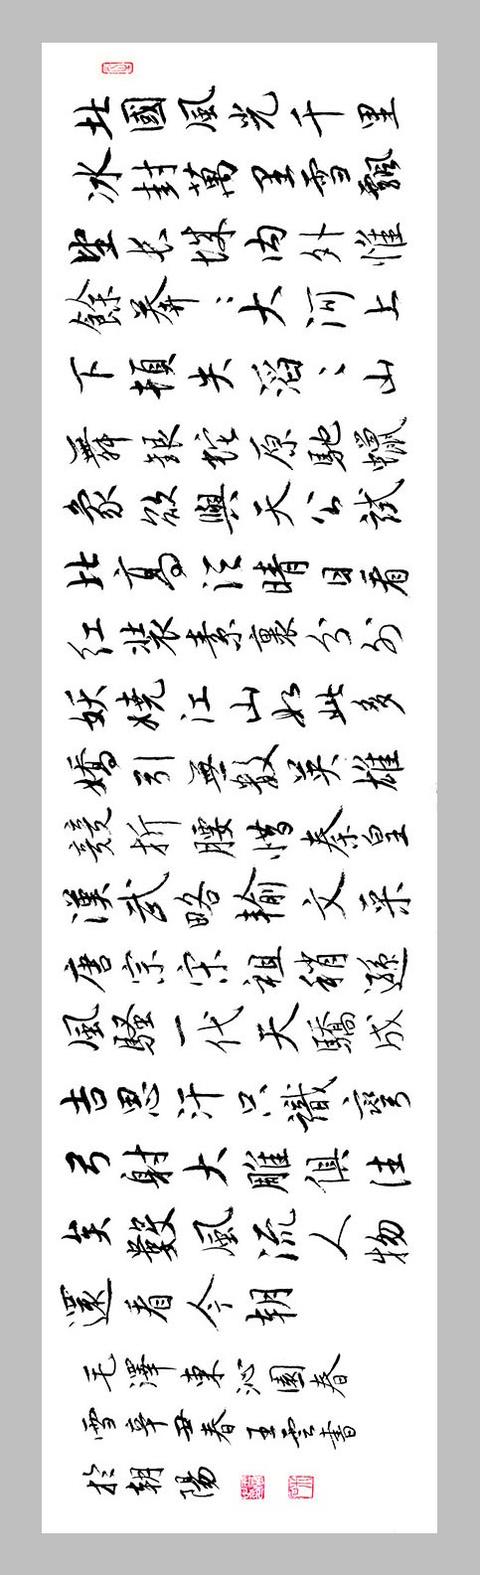 北國風光千里
冰封萬里雪飄
望長城内外惟
餘莽〻大河上
下頓失滔〻山
舞銀蛇原馳蠟
象欲與天公試
比高須晴日看
紅裝素裹分外
妖嬈江山如此多
嬌引無數英雄
競折腰惜秦皇
漢武略輸文采
唐宗宋祖稍遜
風騷一代天驕成
吉思汗只識彎
弓射大雕俱往
矣數風流人物
還看今朝
毛澤東沁園春
雪辛丑春王雲書
於朝陽